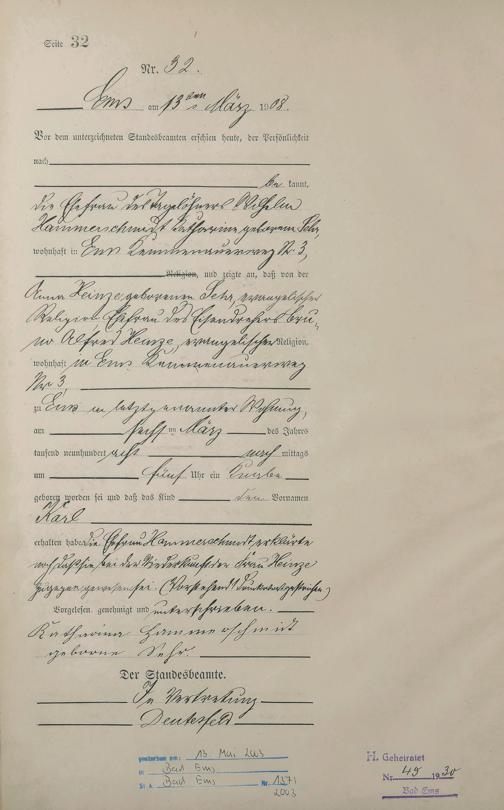 Seite 32
Nr. 32.
Ems am 13ten März 1908.
Vor dem unterzeichneten Standesbeamten erschien heute, der Persönlichkeit
nach
be kannt,
die Ehefrau des Tagelöhners Wilhelm
Hammerschmidt Katharina geborene Sehr,
wohnhaft in Ems Kemmenauerweg Nr. 3,
Religion, und zeigte an, daß von der
Anna Heinze, geborenen Sehr, evangelischer
Religion Ehefrau des Eisendrehers Bru-
no Alfred Heinze, evangelischer Religion,
wohnhaft in Ems Kemmenauerweg
Nr. 3,
zu Ems in letztgenannter Wohnung,
am sechs ten März des Jahres
tausend neunhundert acht nach mittags
um fünf Uhr ein Knabe
geboren worden sei und daß das Kind den Vornamen
Karl
erhalten habe. Die Ehefrau Hammerschmidt erklärte
noch daß sie bei der Niederkunft der Frau Heinze
zugegen gewesen sei. (Vorstehend 1 Druckwort gestrichen)
Vorgelesen, genehmigt und unterschrieben.
Katharina Hammerschmidt
geborne Sehr.
Der Standesbeamte.
In Vertretung
gestorben am: 13. Mai 2003
in Bad Ems
St A Bad Ems Nr. 1371
2003
H. Geheiratet
Nr. 49 1930
Bad Ems